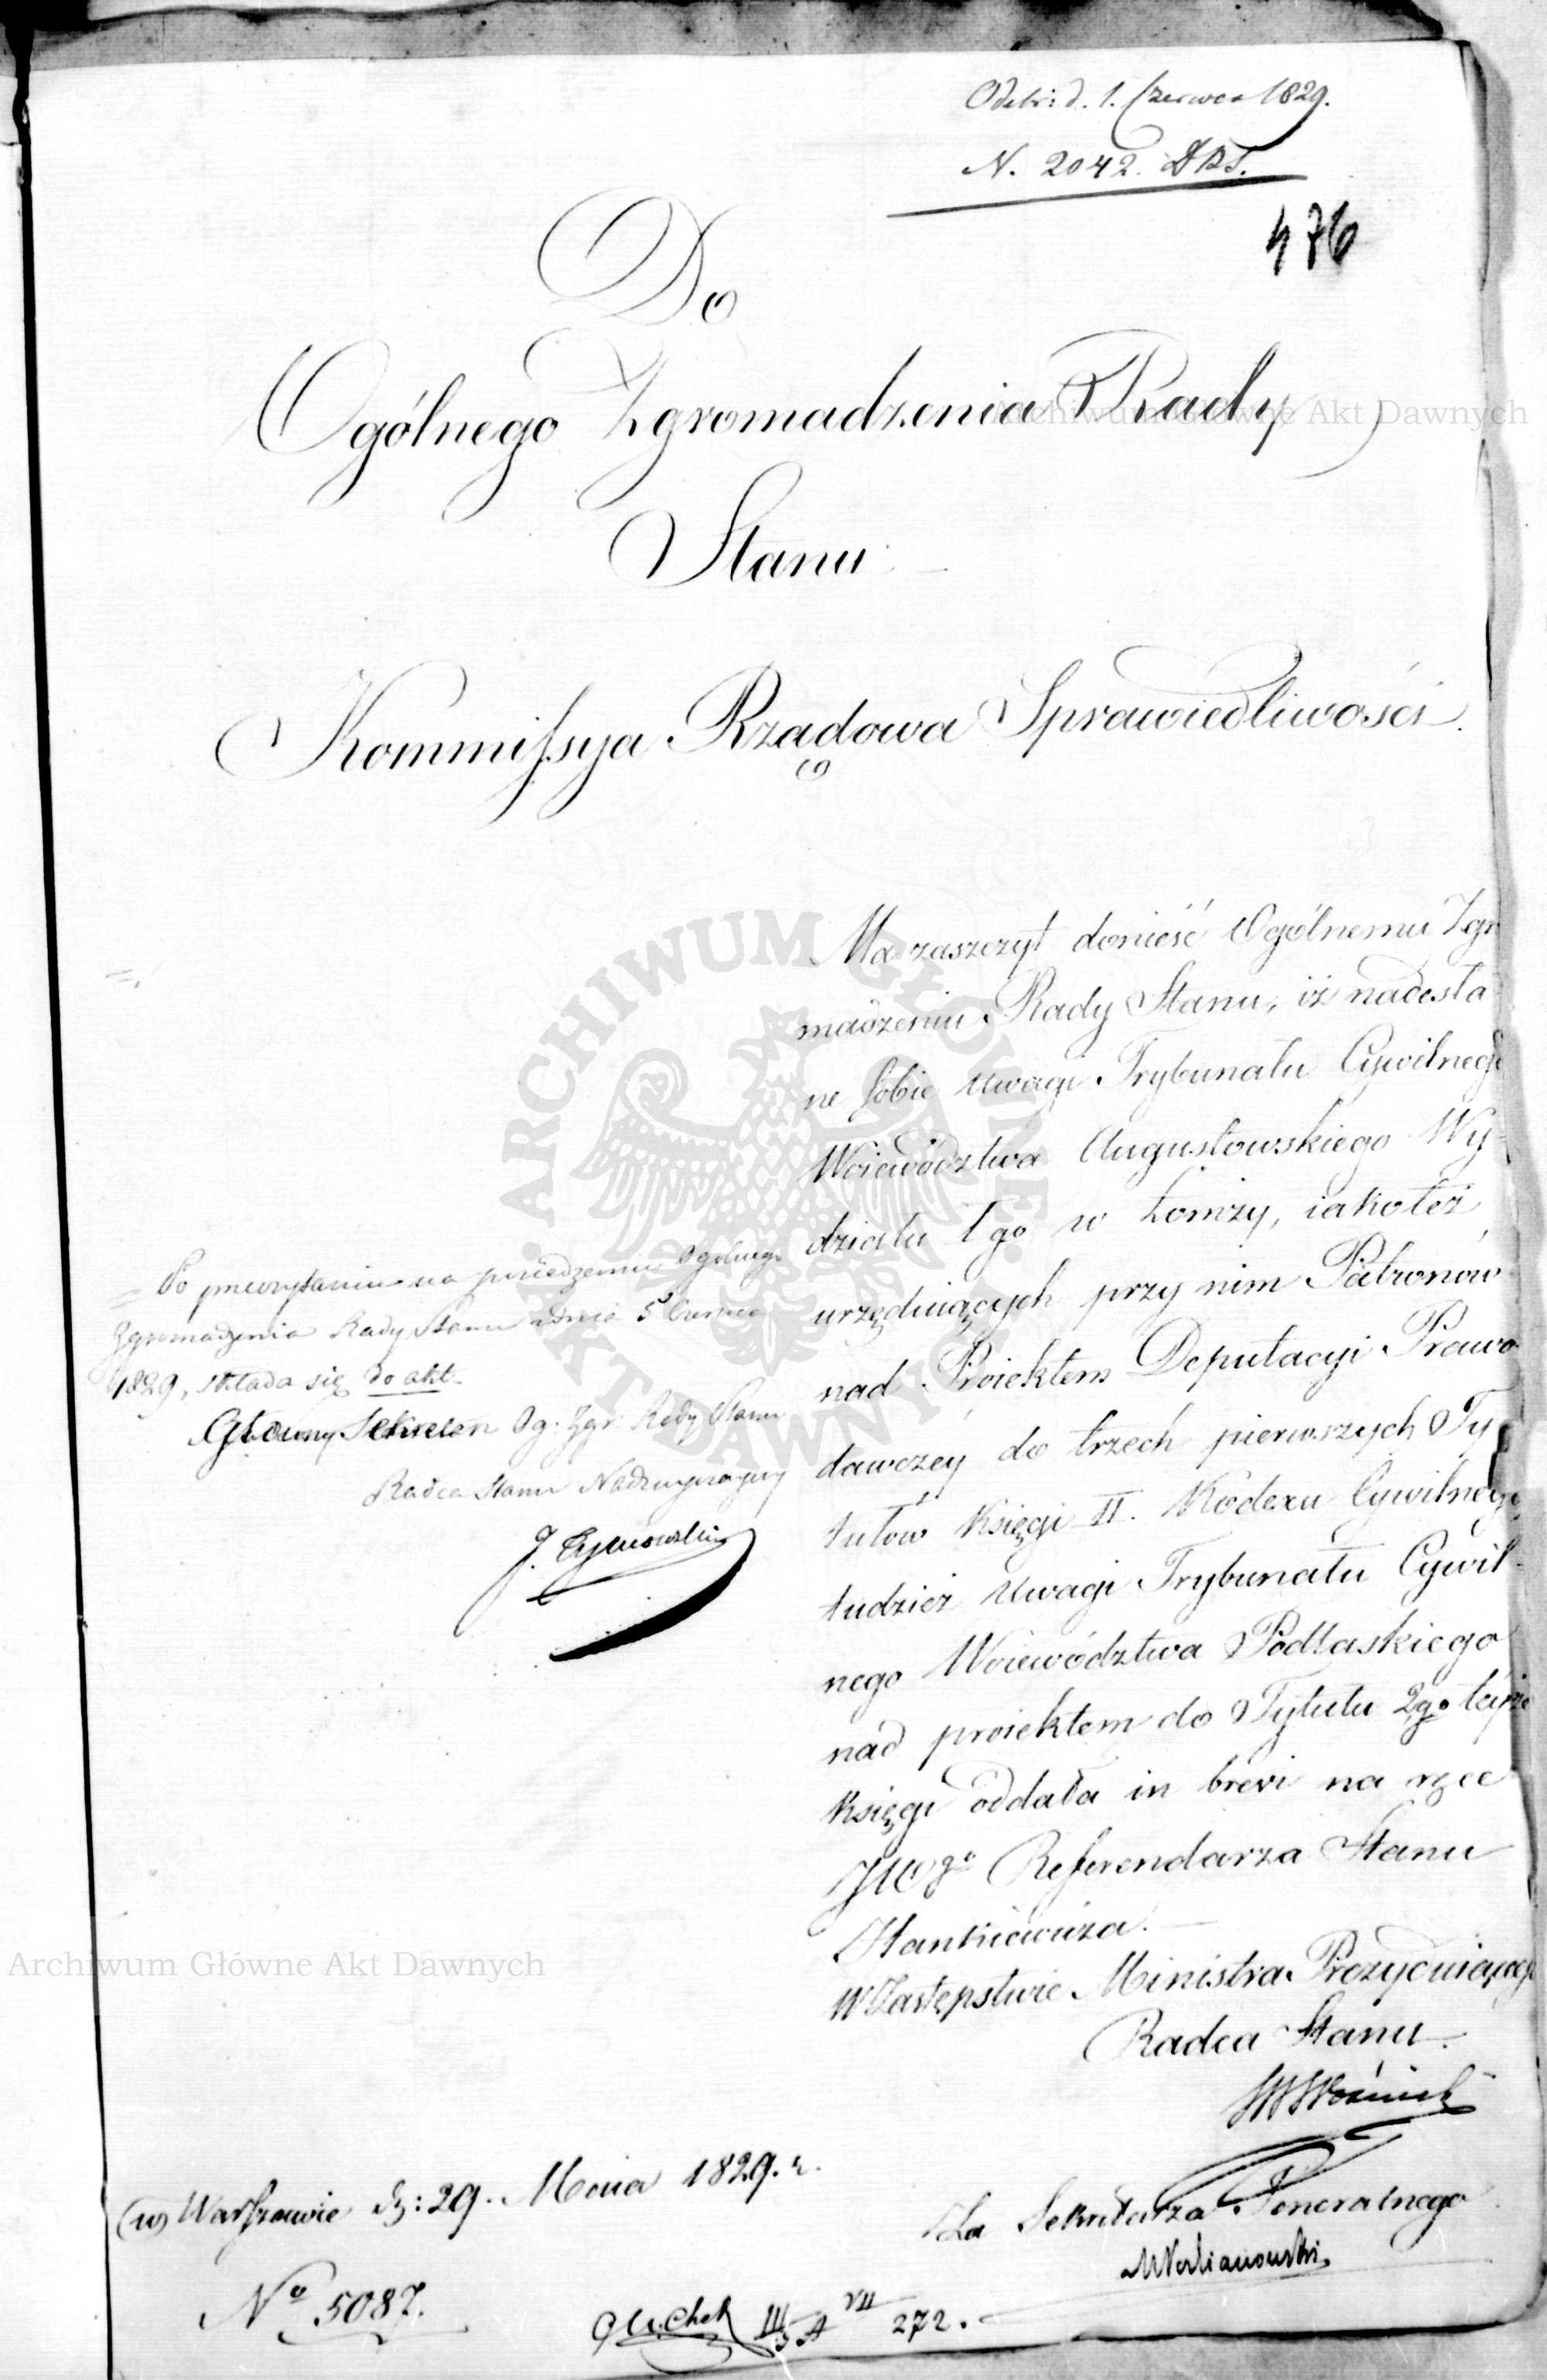 Odebr: d. 1. Czerwca 1829.
N. 2042. DRS.
476
Do
Ogólnego Zgromadzenia Rady
Stanu
Kommissya Rządowa Sprawiedliwości.
Ma zaszczyt donieść Ogólnemu Zgro
madzeniu Rady Stanu, iż nadesła
ne sobie uwagi Trybunału Cywilnego
Woiewództwa Augustowskiego Wy=
działu 1go w Łomży, iako też
urzęduiących przy nim Patronów
nad Proiektem Deputacyi Prawo
dawczey do trzech pierwszych Ty
tułów Księgi II. Kodexu Cywilnego
tudzież uwagi Trybunału Cywil-
nego Woiewództwa Podlaskiego
nad proiektem do Tytułu 2go teyże
księgi oddała in brevi na ręce
JWgo Referendarza Stanu
Hankiewicza.
W Zastępstwie Ministra Prezyduiącego
Radca Stanu
Woźnicki
Za Sekretarza Generalnego
= Po przeczytaniu na posiedzeniu Ogólnego
Zgromadzenia Rady Stanu dnia 5 Czerwca
1829, składa się do akt.
Główny Sekretarz Og: Zgr: Rady Stanu
Radca Stanu Nadzwyczayny
J. Tymowski
w Warszawie d: 29. Maia 1829. r.
No 5087.
III A VII 272.
Archiwum Główne Akt Dawnych
ARCHIWUM GŁÓWNE AKT DAWNYCH
Archiwum Główne Akt Dawnych